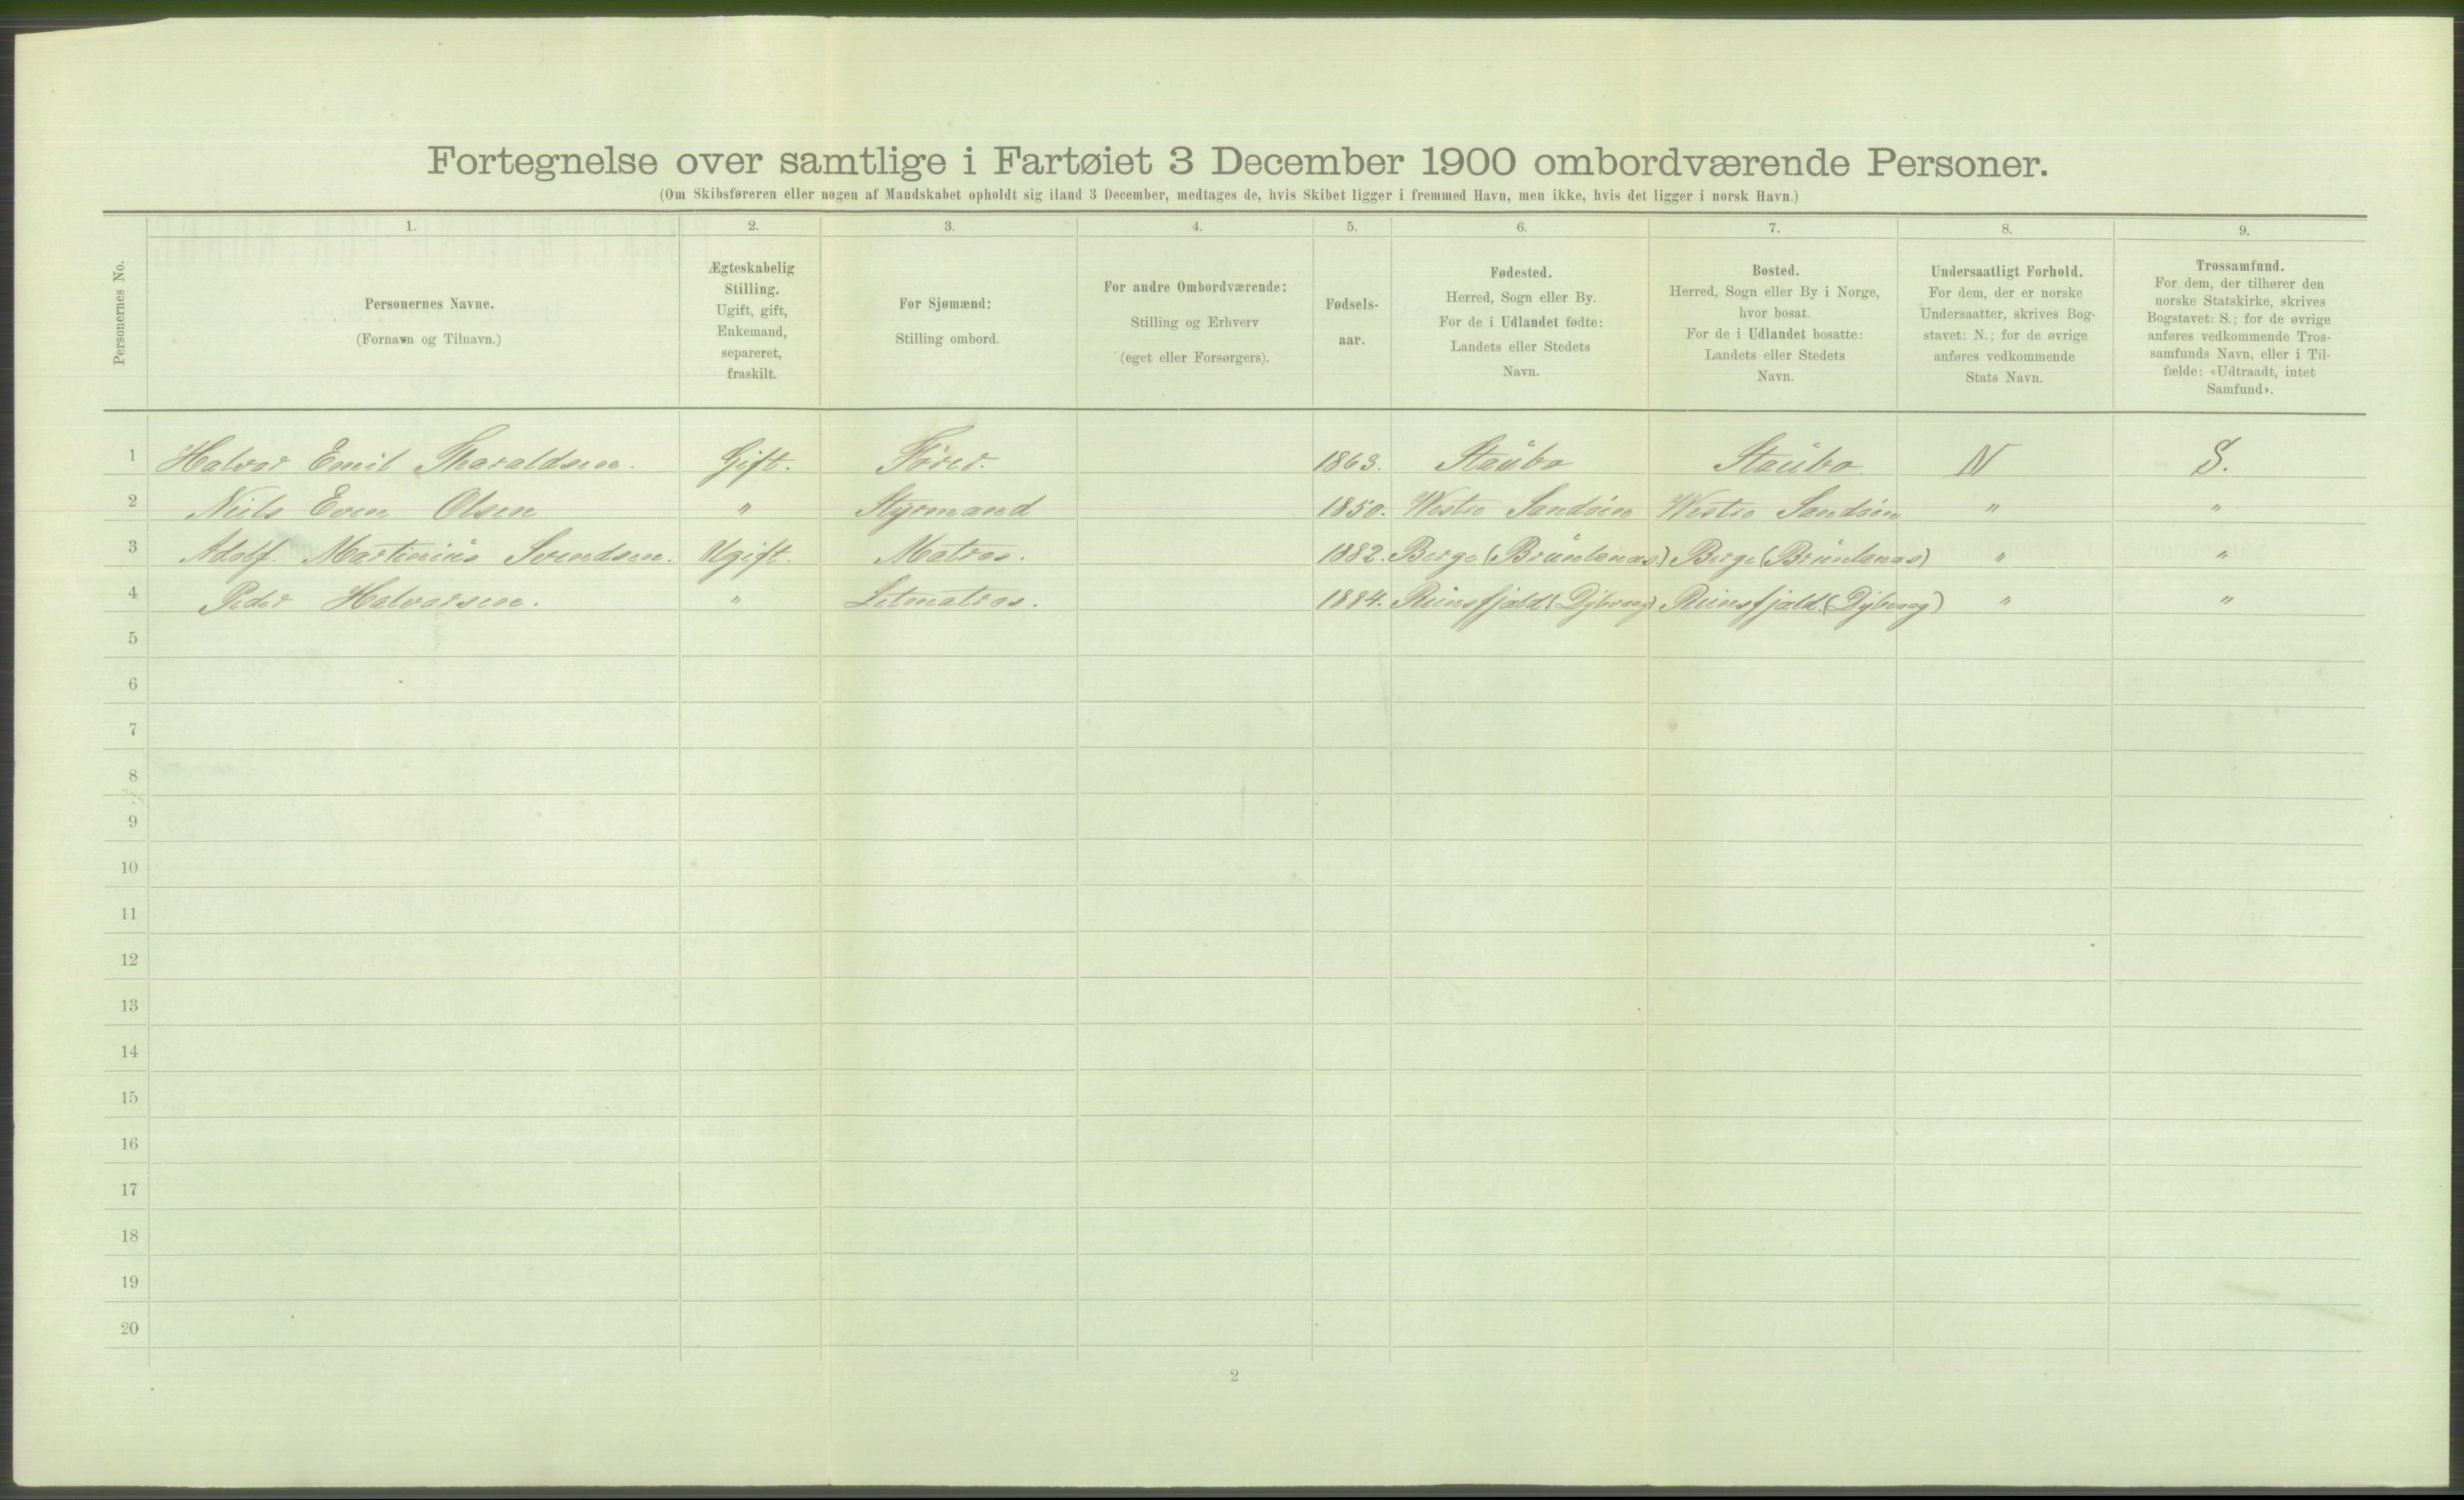 Fortegnelse over samtlige i Fartøiet 3 December 1900 ombordværende Personer.
(Om Skibsføreren eller nogen af Mandskabet opholdt sig iland 3 December, medtages de, hvis Skibet ligger i fremmed Havn, men ikke, hvis det ligger i norsk Havn.)
Personernes No.
1. 2. 3. 4. 5. 6. 7. 8. 9.
Personernes Navne.
(Fornavn og Tilnavn.)
Ægteskabelig
Stilling.
Ugift, gift,
Enkemand,
separeret,
fraskilt.
For Sjømænd:
Stilling ombord.
For andre Ombordværende:
Stilling og Erhverv
(eget eller Forsørgers).
Fødsels-
aar.
Fødested.
Herred, Sogn eller By.
For de i Udlandet fødte:
Landets eller Stedets
Navn.
Bosted.
Herred, Sogn eller By i Norge,
hvor bosat.
For de i Udlandet bosatte:
Landets eller Stedets
Navn.
Undersaatligt Forhold.
For dem, der er norske
Undersaatter, skrives Bog-
stavet: N.; for de øvrige
anføres vedkommende
Stats Navn.
Trossamfund.
For dem, der tilhører den
norske Statskirke, skrives
Bogstavet: S.; for de øvrige
anføres vedkommende Tros-
samfunds Navn, eller i Til-
fælde: «Udtraadt, intet
Samfund».
1 Halvor Emil Tharaldsen. Gift. Fører. 1863. Staübo Staübo N S.
2 Neils Even Olsen " Styrmand 1850. Westre Sandøen Westre Sandøen " "
3 Adolf Martinius Svendsen. Ugift. Matros. 1882. Berge (Brünlanæs) Berge (Brünlanæs) " "
4 Peder Halvorsen. " Letmatros. 1884. (Dybvaag) (Dybvaag) " "
5
6
7
8
9
10
11
12
13
14
15
16
17
18
19
20
2